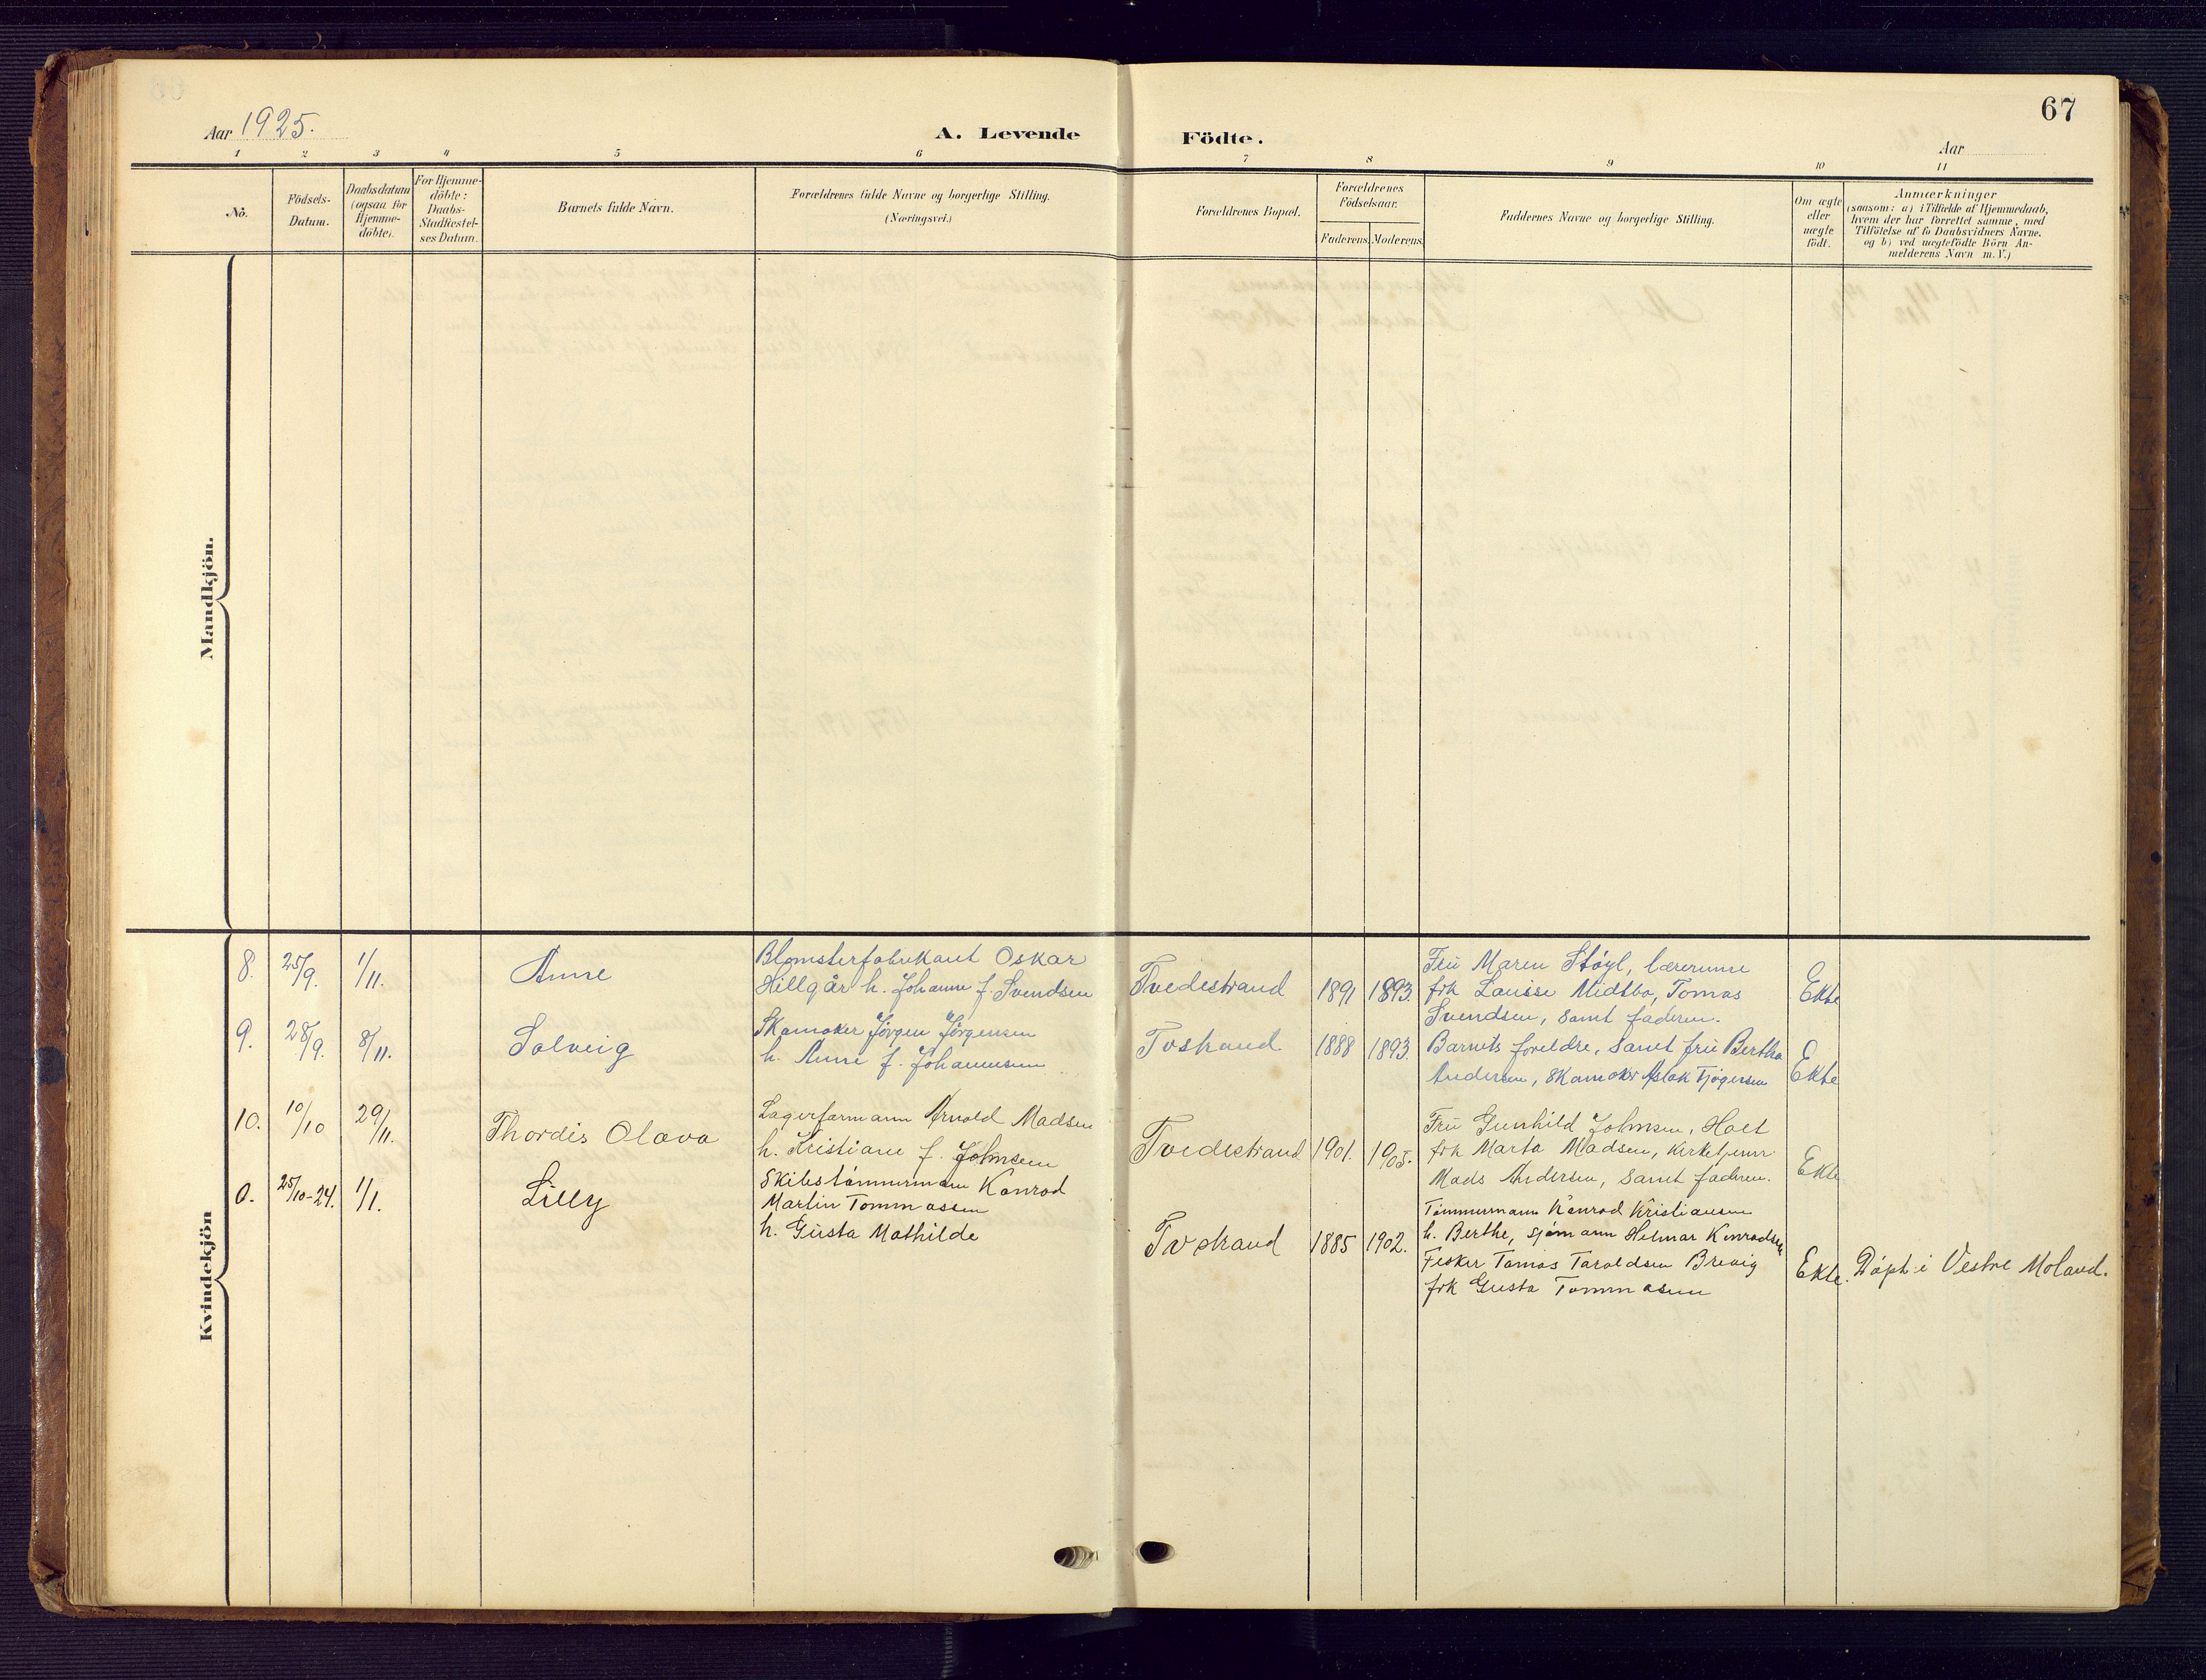 67
Aar 1925.
A. Levende Födte.
Aar
1 2 3 4 5 6 7 8 9 10 11
No.
Födsels-
Datum.
Daabsdatum
(ogsaa for
Hjemme-
döbte).
For Hjemme-
döbte:
Daabs-
Stadfæstel-
ses Datum.
Barnets fulde Navn.
Forældrenes fulde Navne og borgerlige Stilling.
(Næringsvei.)
Forældrenes Bopæl.
Forældrenes
Födselsaar.
Faderens. Moderens.
Faddernes Navne og borgerlige Stilling.
Om ægte
eller
uægte
födt.
Anmærkninger
(saasom: a) i Tilfælde af Hjemmedaab,
hvem der har forrettet samme, med
Tilföielse af to Daabsvidners Navne,
og b) ved uægtefödte Börn An-
melderens Navn m. V.)
Mandkjön.
Kvindekjön
8. 25/9. 1/11. Anne
Blomsterfabrikant Oskar
Hillgår h. Johanne f. Svendsen
Tvedestrand 1891 1893.
Fru Maren Støyl, lærerinne
frk Louise Midtbø, Tomas
Svendsen, samt faderen.
Ekte
9. 28/9. 8/11. Solveig
Skomaker Jørgen Jørgensen
h. Anne f. Johannesen
Tvstrand 1888 1893.
Barnets foreldre, samt fru Bertha
Andersen, skomaker Aslak Tjøgersen
Ekte
10. 10/10 29/11. Thordis Olava
Lagerformann Arnold Madsen
h. Kristiane f. Johnsen
Tvedestrand 1901. 1905.
Fru Gunhild Johnsen, Holt
frk Marta Madsen, kirketjener
Mads Andersen, samt faderen.
Ekte
0. 25/10-24. 1/1. Lilly
Skibstømmermann Konrad
Martin Tommassen
h. Gusta Mathilde
Tvstrand 1885 1902.
Tømmermann Konrad Kristiansen
h. Berthe, sjømann Helmar Konradsen
Fisker Tomas Taraldsen Brevig
frk Gusta Tommasen
Ekte. Døpt i Vestre Moland.